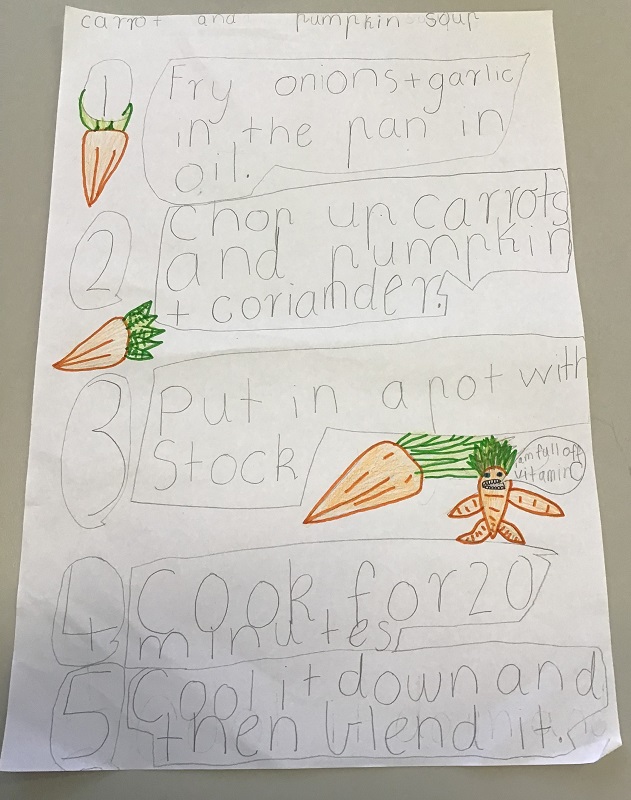 carrot and pumpkin soup
1
Fry onions+garlic
in the pan in
oil.
2
Chop up carrots
and pumpkin
+ coriander.
3
Put in a pot with
Stock
am full off
vitamin C
4
Cook for 20
minutes
5
Cool it down and
then blend it.